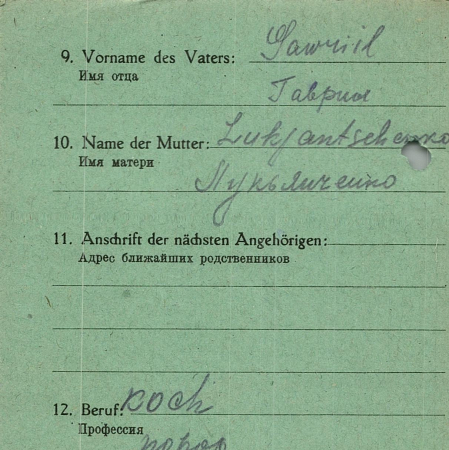 9. Vorname des Vaters: Gawriil
Имя отца
Гаврил
10. Name der Mutter: Lukjantschenko
Имя матери
Лукьянченко
11. Anschrift der nächsten Angehörigen:
Адрес ближайших родственников
12. Beruf: Koch
Профессия
повар